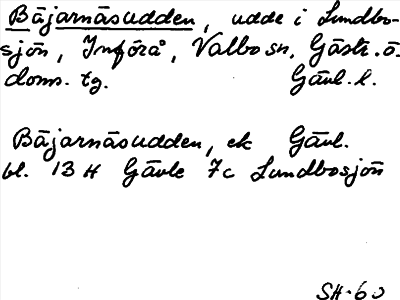 Bäjarnäsudden, udde i Lundbo-
sjön, Införå, Valbo sn, Gästr. ö.
doms. tg. Gävl. l.
Bäjarnäsudden, ek Gävl.
bl. 13 H Gävle 7c Lundbosjön
SH-60